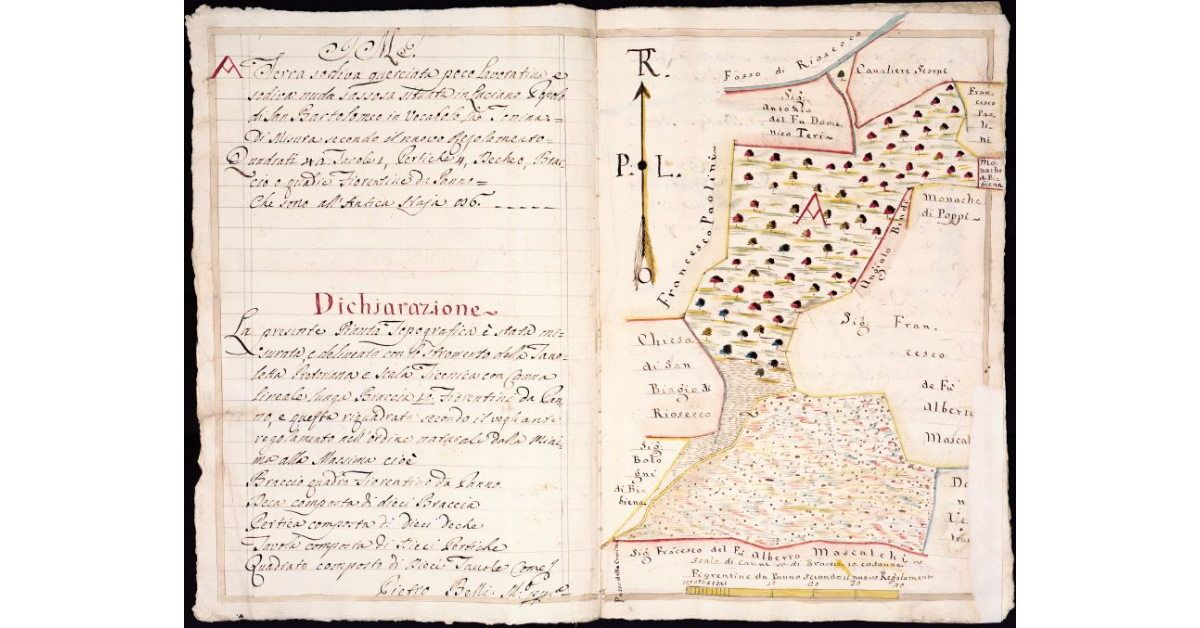 J M J.
A
Terra sodiva querciata poco lavoratina, e
sodiva nuda sassosa situata in Luciano Popolo
di San Bartolomeo in Vocabolo
Di Misura secondo il nuovo Regolamento
Quadrati Tavole 1, Pertiche 4, Deche 0, Brac-
cio 0 quadre Fiorentine da Panno=
Che sono all'Antica Staja
Dichiarazione
La presente Pianta Topografica è stata mi-
surata, e delineata con lo Stromento della Tavo-
letta Pretoriana e Scala Ticonica con Canna
lineale lunga Braccia Fiorentine da Pan-
no, e questa riquadrata secondo il vegliante
regolamento nell'ordine naturale dalla Mini-
ma alla Massima cioè
Braccio quadro Fiorentino da Panno
Deca composta di dieci Braccia
Pertica composta di Dieci Deche
Tavola composta di Dieci Pertiche
Quadrato composto di Dieci Tavole
Pietro Belli
TR.
P. L.
O
Fosso di Rioseco
Cavaliere Scorne
Sig.
Antonio
del Fu Dome
nico Teri
Fran-
cesco
Pao-
li-
ni
Mo-
nache
di Bi-
biena
Monache
di Poppi
Francesco Paolini
A
Angiolo Bindi
Sig Fran-
cesco
de Fu
Alberto
Mascal
Chiesa
di San
Biagio di
Riosecco
Sig.
Bolo
gni
di Bi-
biena
Sig Francesco del Fu Alberto Mascalchi
Scala di Canne 30 di Braccia 10 cadauna
Fiorentine da Panno secondo il nuovo Regolamento
10 20 30